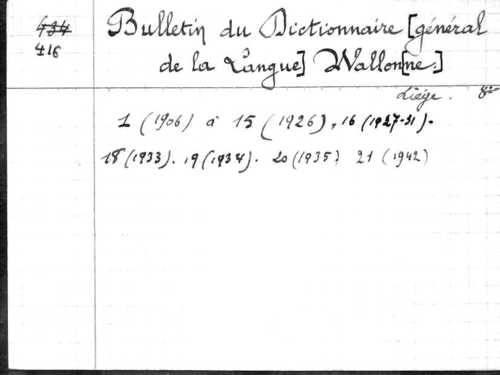 434
416
Bulletin du Dictionnaire [général
de la Langue] Wallon[ne.]
Liége. 8º
1 (1906) à 15 (1926), 16 (1927-31).
18 (1933). 19 (1934). 20 (1935) 21 (1942)